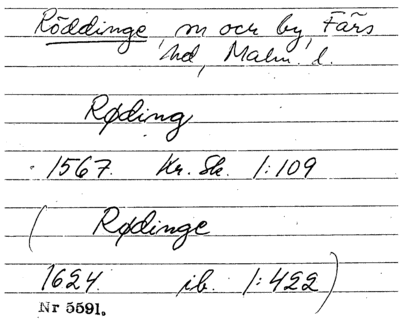 Röddinge, sn och by, Färs
hd, Malm. l.
Røding
1567. Kr. Sk. 1:109
( Rødinge
1624. ib. 1:422 )
Nr 5591.